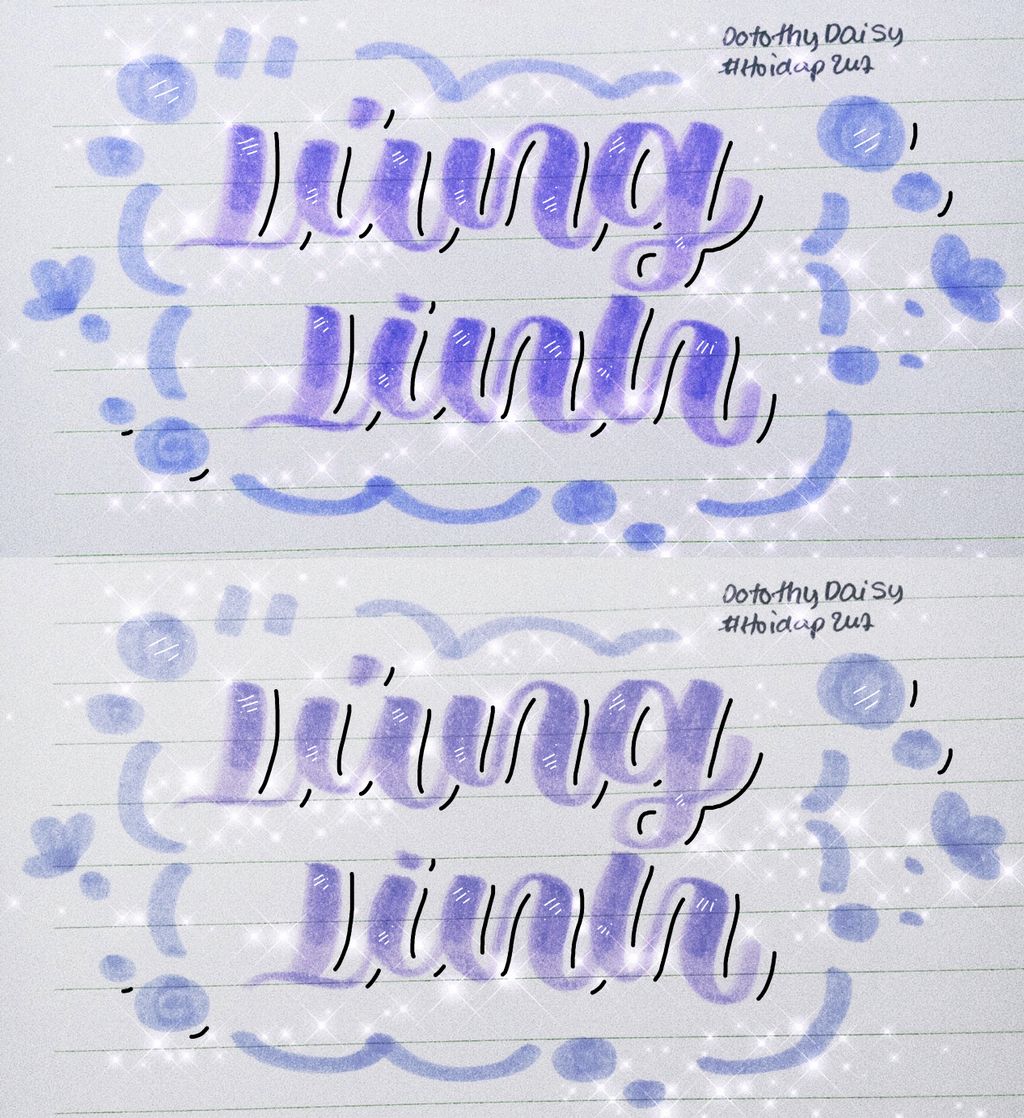 DorothyDaisy
#Hoidap247
Lung
Linh
DorothyDaisy
#Hoidap247
Lung
Linh